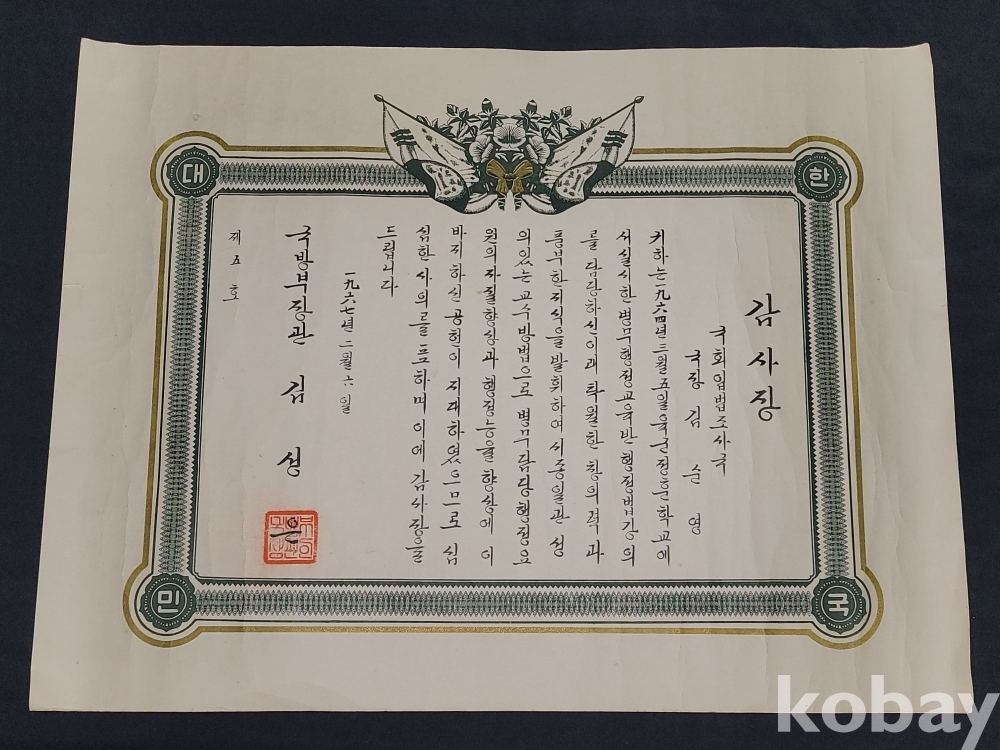 대 한
감사장
국회입법조사국
국장 김 순 영
귀하는 一九六四년 三월 五일 육군정훈학교에
서 실시한 병무행정교육반 행정법강의
를 담당하신 이래 탁월한 창의력과
풍부한 지식을 발휘하여 시종일관 성
의있는 교수방법으로 병무담당행정요
원의 자질향상과 행정능률향상에 이
바지하신 공헌이 지대하였으므로 심
심한 사의를 표하며 이에 감사장을
드립니다
一九六七년 二월 六일
국방부장관 김 성 은
제 五 호
민 국
kobay